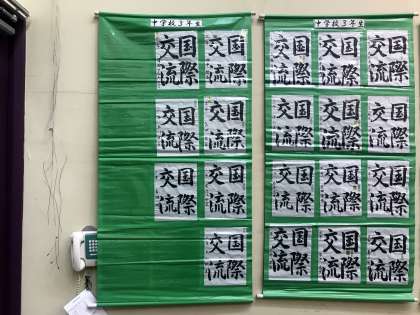 中学校3年生
国際
交流
国際
交流
国際
交流
国際
交流
国際
交流
国際
交流
国際
交流
中学校3年生
国際
交流
国際
交流
国際
交流
国際
交流
国際
交流
国際
交流
国際
交流
国際
交流
国際
交流
国際
交流
国際
交流
国際
交流